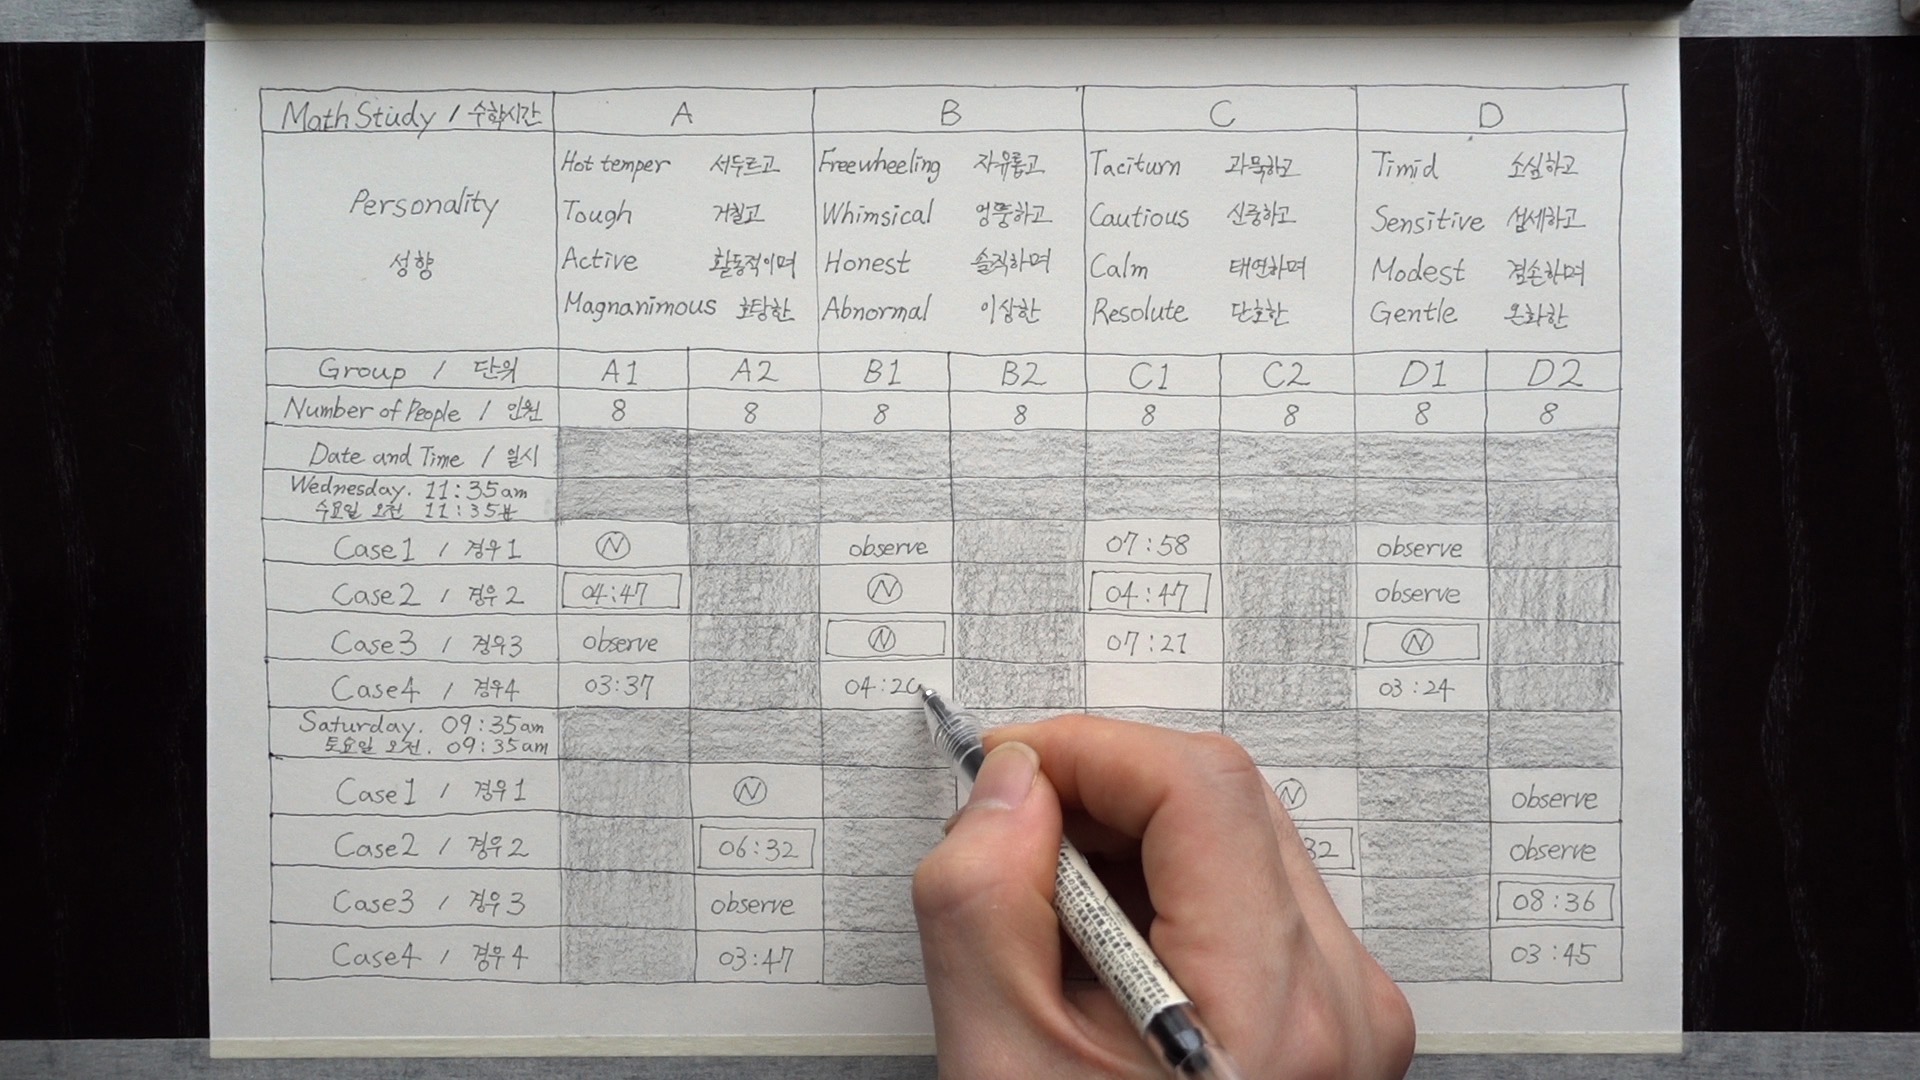 Math Study / 수학시간 A B C D
Personality
성향
Hot temper 서두르고
Tough 거칠고
Active 활동적이며
Magnanimous 호탕한
Freewheeling 자유롭고
Whimsical 엉뚱하고
Honest 솔직하며
Abnormal 이상한
Taciturn 과묵하고
Cautious 신중하고
Calm 태연하며
Resolute 단호한
Timid 소심하고
Sensitive 섬세하고
Modest 겸손하며
Gentle 온화한
Group / 단위 A1 A2 B1 B2 C1 C2 D1 D2
Number of People / 인원 8 8 8 8 8 8 8 8
Date and Time / 일시
Wednesday. 11:35am
수요일 오전 11:35
Case1 / 경우1 N observe 07:58 observe
Case2 / 경우2 04:47 N 04:47 observe
Case3 / 경우3 observe N 07:21 N
Case4 / 경우4 03:37 04:20 03:24
Saturday. 09:35am
토요일 오전. 09:35am
Case1 / 경우1 N N observe
Case2 / 경우2 06:32 32 observe
Case3 / 경우3 observe 08:36
Case4 / 경우4 03:47 03:45